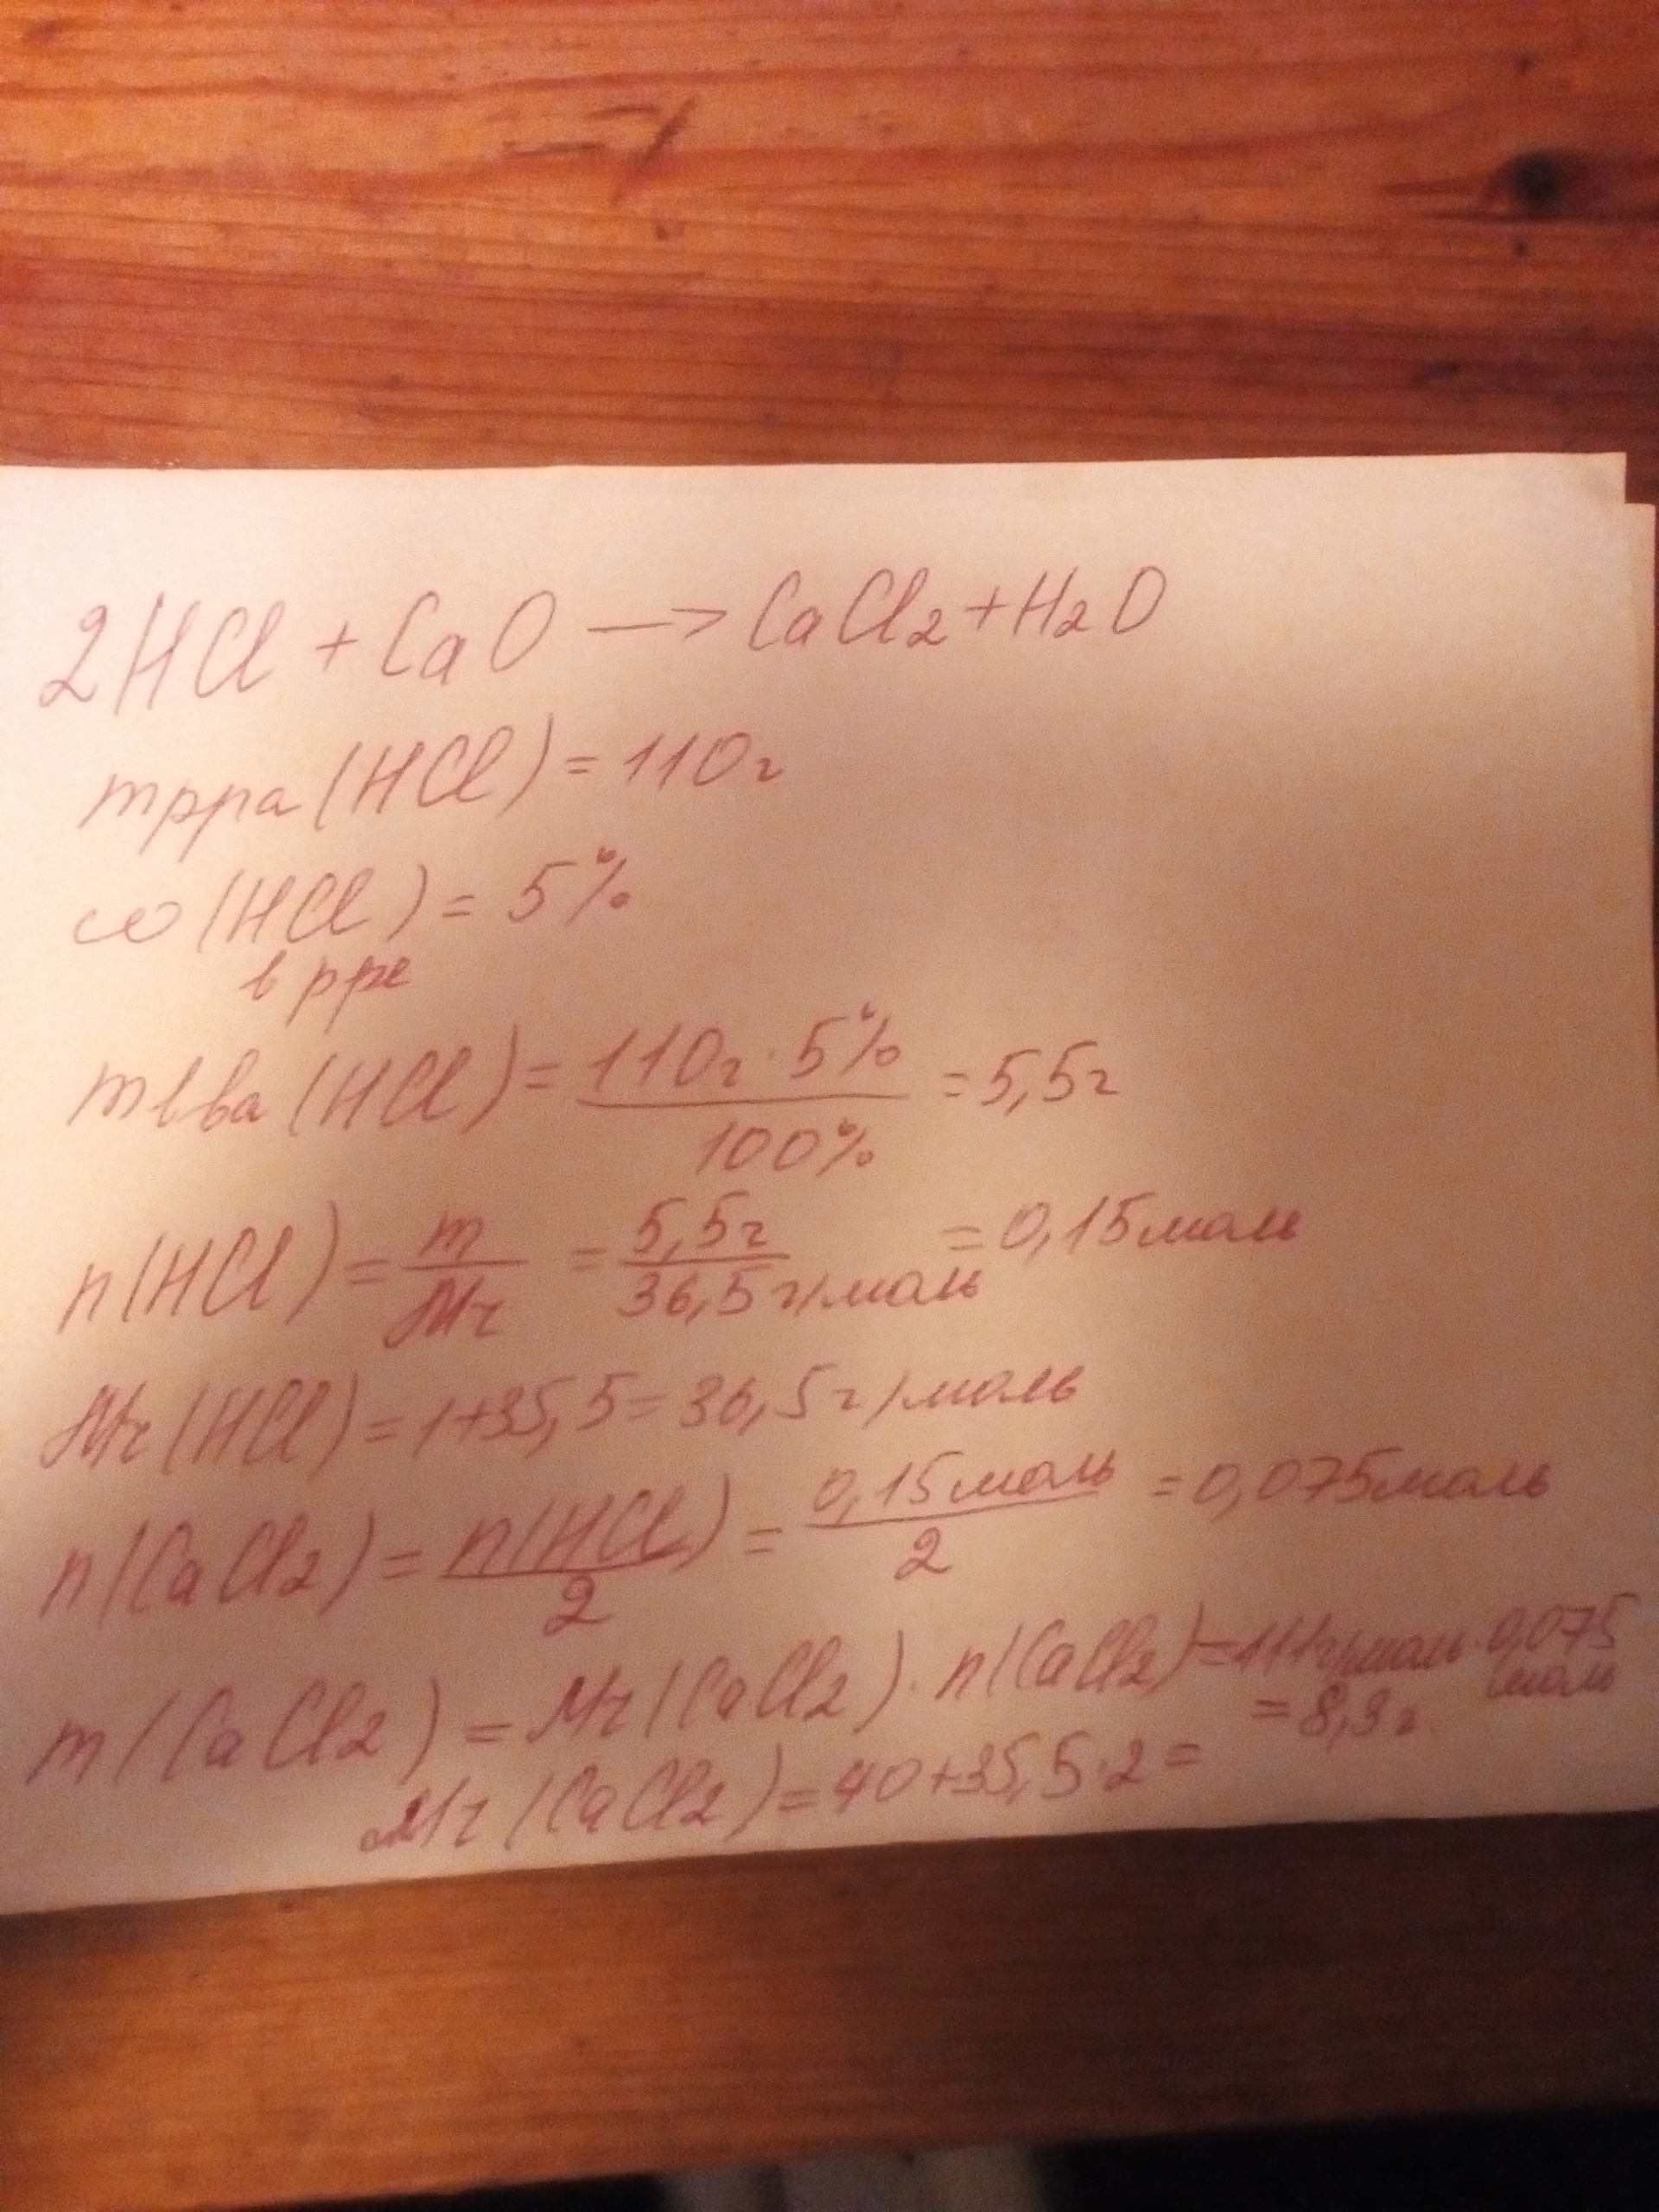 2HCl + CaO —> CaCl2 + H2O
mрра (HCl) = 110г
ω (HCl) = 5%
в рре
mвва (HCl) = 110г · 5% / 100% = 5,5г
n(HCl) = m / Mr = 5,5г / 36,5 г/моль = 0,15моль
Mr (HCl) = 1+35,5 = 36,5г/моль
n(CaCl2) = n(HCl) / 2 = 0,15моль / 2 = 0,075моль
m (CaCl2) = Mr(CaCl2) · n(CaCl2) = 111г/моль · 0,075 моль
= 8,3г.
Mr (CaCl2) = 40+35,5·2 =